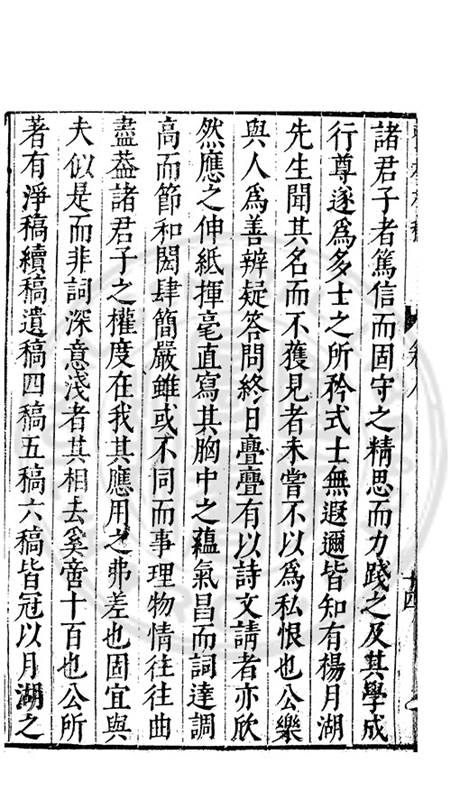 諸君子者篤信而固守之精思而力踐之及其學成
行尊遂爲多士之所矜式士無遐邇皆知有楊月湖
先生聞其名而不獲見者未嘗不以爲私恨也公樂
與人爲善辨疑答問終日亹亹有以詩文請者亦欣
然應之伸紙揮毫直寫其胸中之蘊氣昌而詞達調
高而節和閎肆簡嚴雖或不同而事理物情往往曲
盡葢諸君子之權度在我其應用之弗差也固宜與
夫似是而非詞深意淺者其相去奚啻十百也公所
著有淨稿續稿遺稿四稿五稿六稿皆冠以月湖之